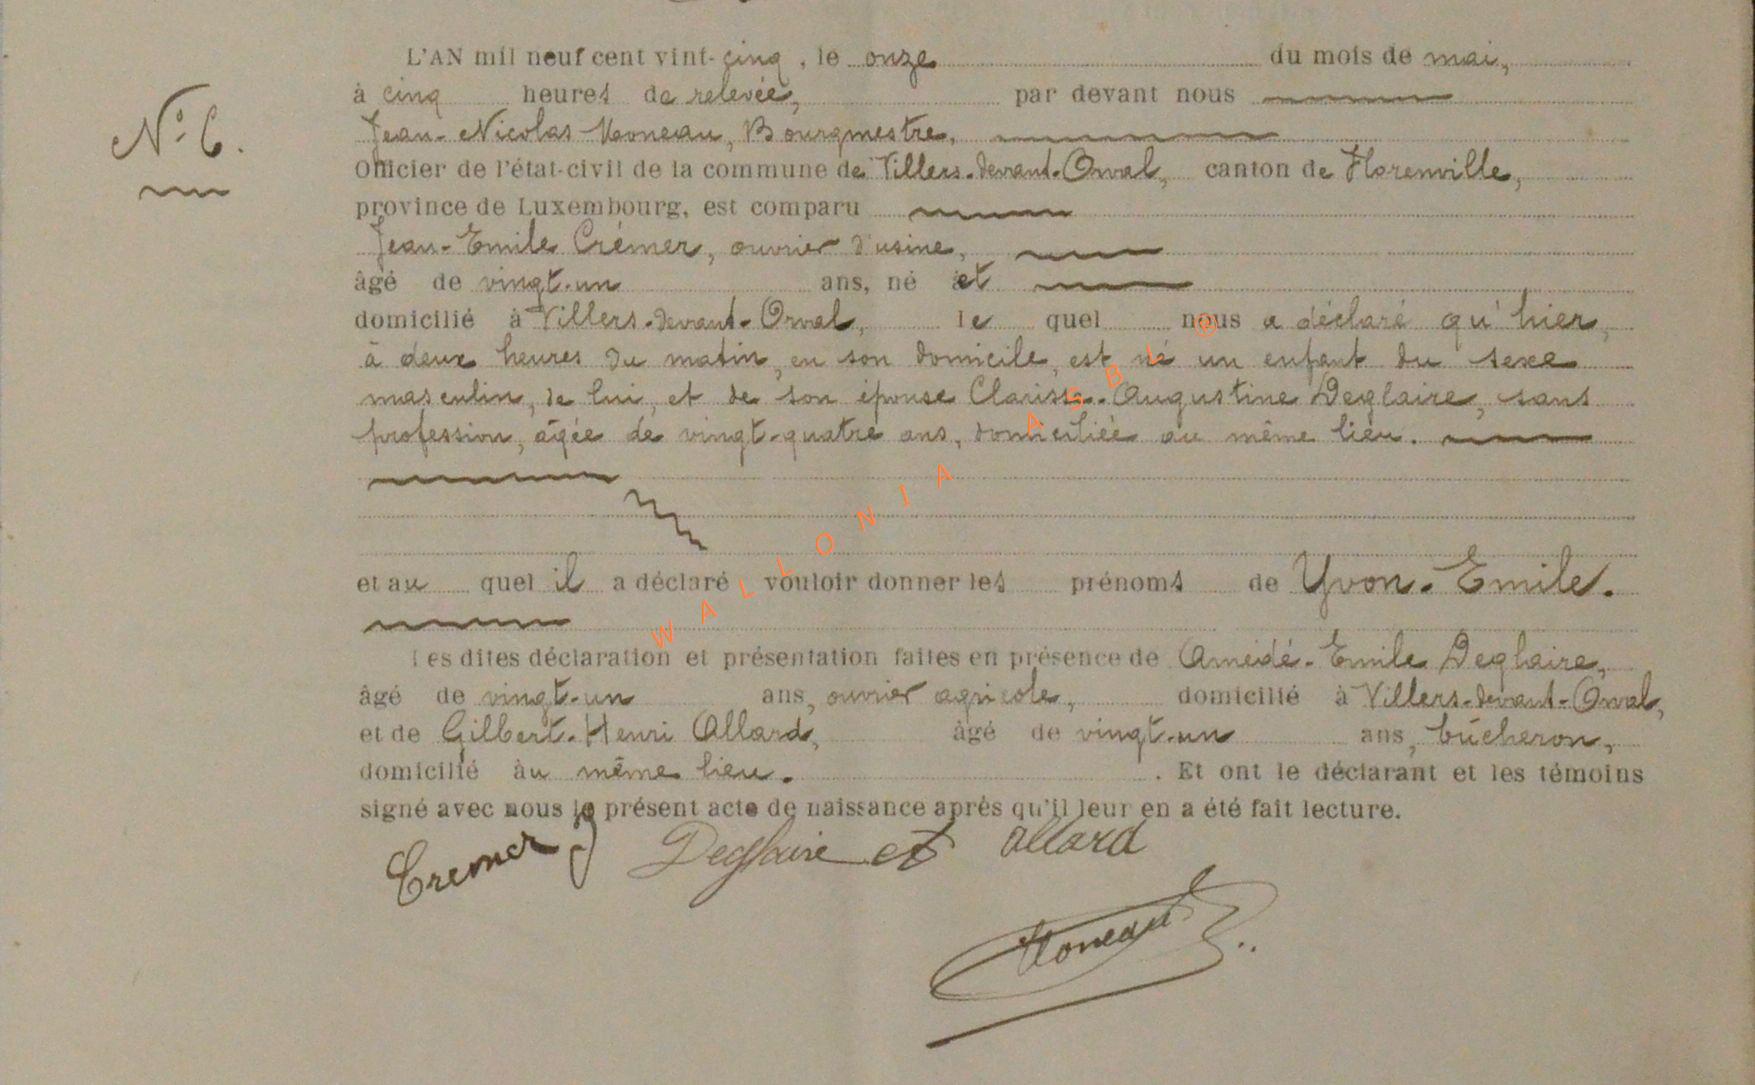 L'AN mil neuf cent vint-cinq, le onze du mois de mai,
à cinq heures de relevée, par devant nous
N° 6.
Jean-Nicolas Honeau, Bourgmestre,
Officier de l'état-civil de la commune de Villers-devant-Orval, canton de Florenville,
province de Luxembourg, est comparu
Jean-Emile Crémer, ouvrier d'usine,
âgé de vingt-un ans, né et
domicilié à Villers-devant-Orval, le quel nous a déclaré qu'hier,
à deux heures du matin, en son domicile, est né un enfant du sexe
masculin, de lui, et de son épouse Clarisse-Augustine Deglaire, sans
profession, âgée de vingt-quatre ans, domiciliée au même lieu.
et au quel il a déclaré vouloir donner les prénoms de Yvon-Emile.
Les dites déclaration et présentation faites en présence de Amédé-Emile Deglaire,
âgé de vingt-un ans, ouvrier agricole, domicilié à Villers-devant-Orval,
et de Gilbert-Henri Allard, âgé de vingt-un ans, bûcheron,
domicilié au même lieu. . Et ont le déclarant et les témoins
signé avec nous le présent acte de naissance après qu'il leur en a été fait lecture.
Cremer J Deglaire et allard
Honeau
WALLONIA ASBL ©